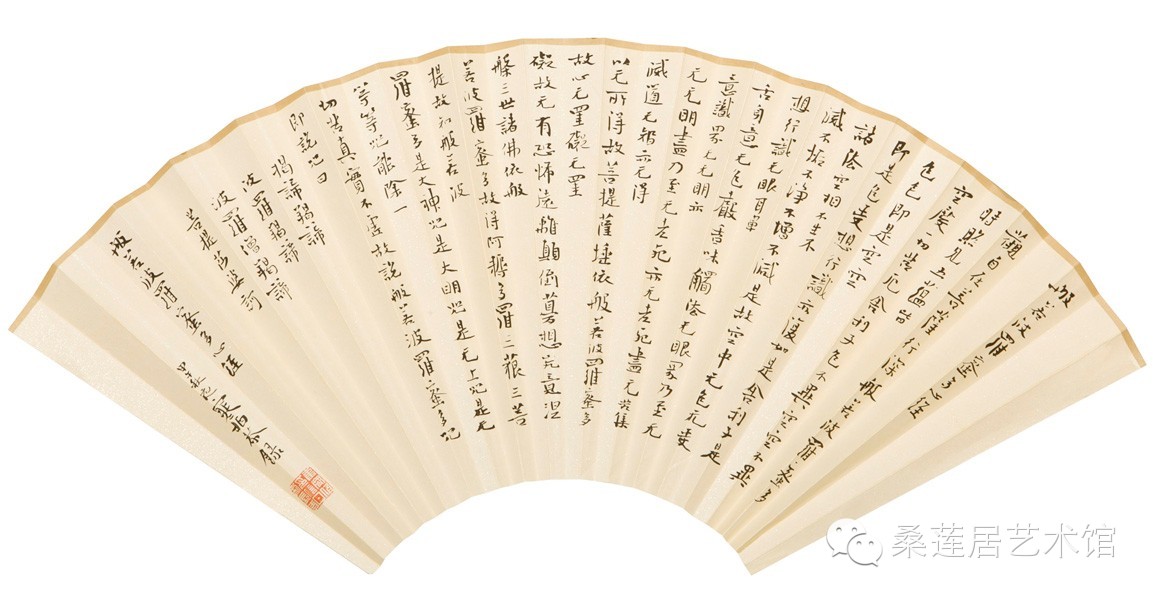 般若波羅蜜多心經
觀自在菩薩行深般若波羅蜜多
時照見五蘊皆
空度一切苦厄舍利子色不異空空不異
色色即是空空
即是色受想行識亦復如是舍利子是
諸法空相不生不
滅不垢不淨不增不減是故空中无色无受
想行識无眼耳鼻
舌身意无色聲香味觸法无眼界乃至无
意識界无无明亦
无无明盡乃至无老死亦无老死盡无苦集
滅道无智亦无得
以无所得故菩提薩埵依般若波羅蜜多
故心无罣礙无罣
礙故无有恐怖遠離顛倒夢想究竟涅
槃三世諸佛依般
若波羅蜜多故得阿耨多羅三藐三菩
提故知般若波
羅蜜多是大神咒是大明咒是无上咒是无
等等咒能除一
切苦真實不虛故說般若波羅蜜多咒
即說咒曰
揭諦揭諦
波羅揭諦
波羅僧揭諦
菩提莎婆訶
般若波羅蜜多心經
恭録
桑莲居艺术馆